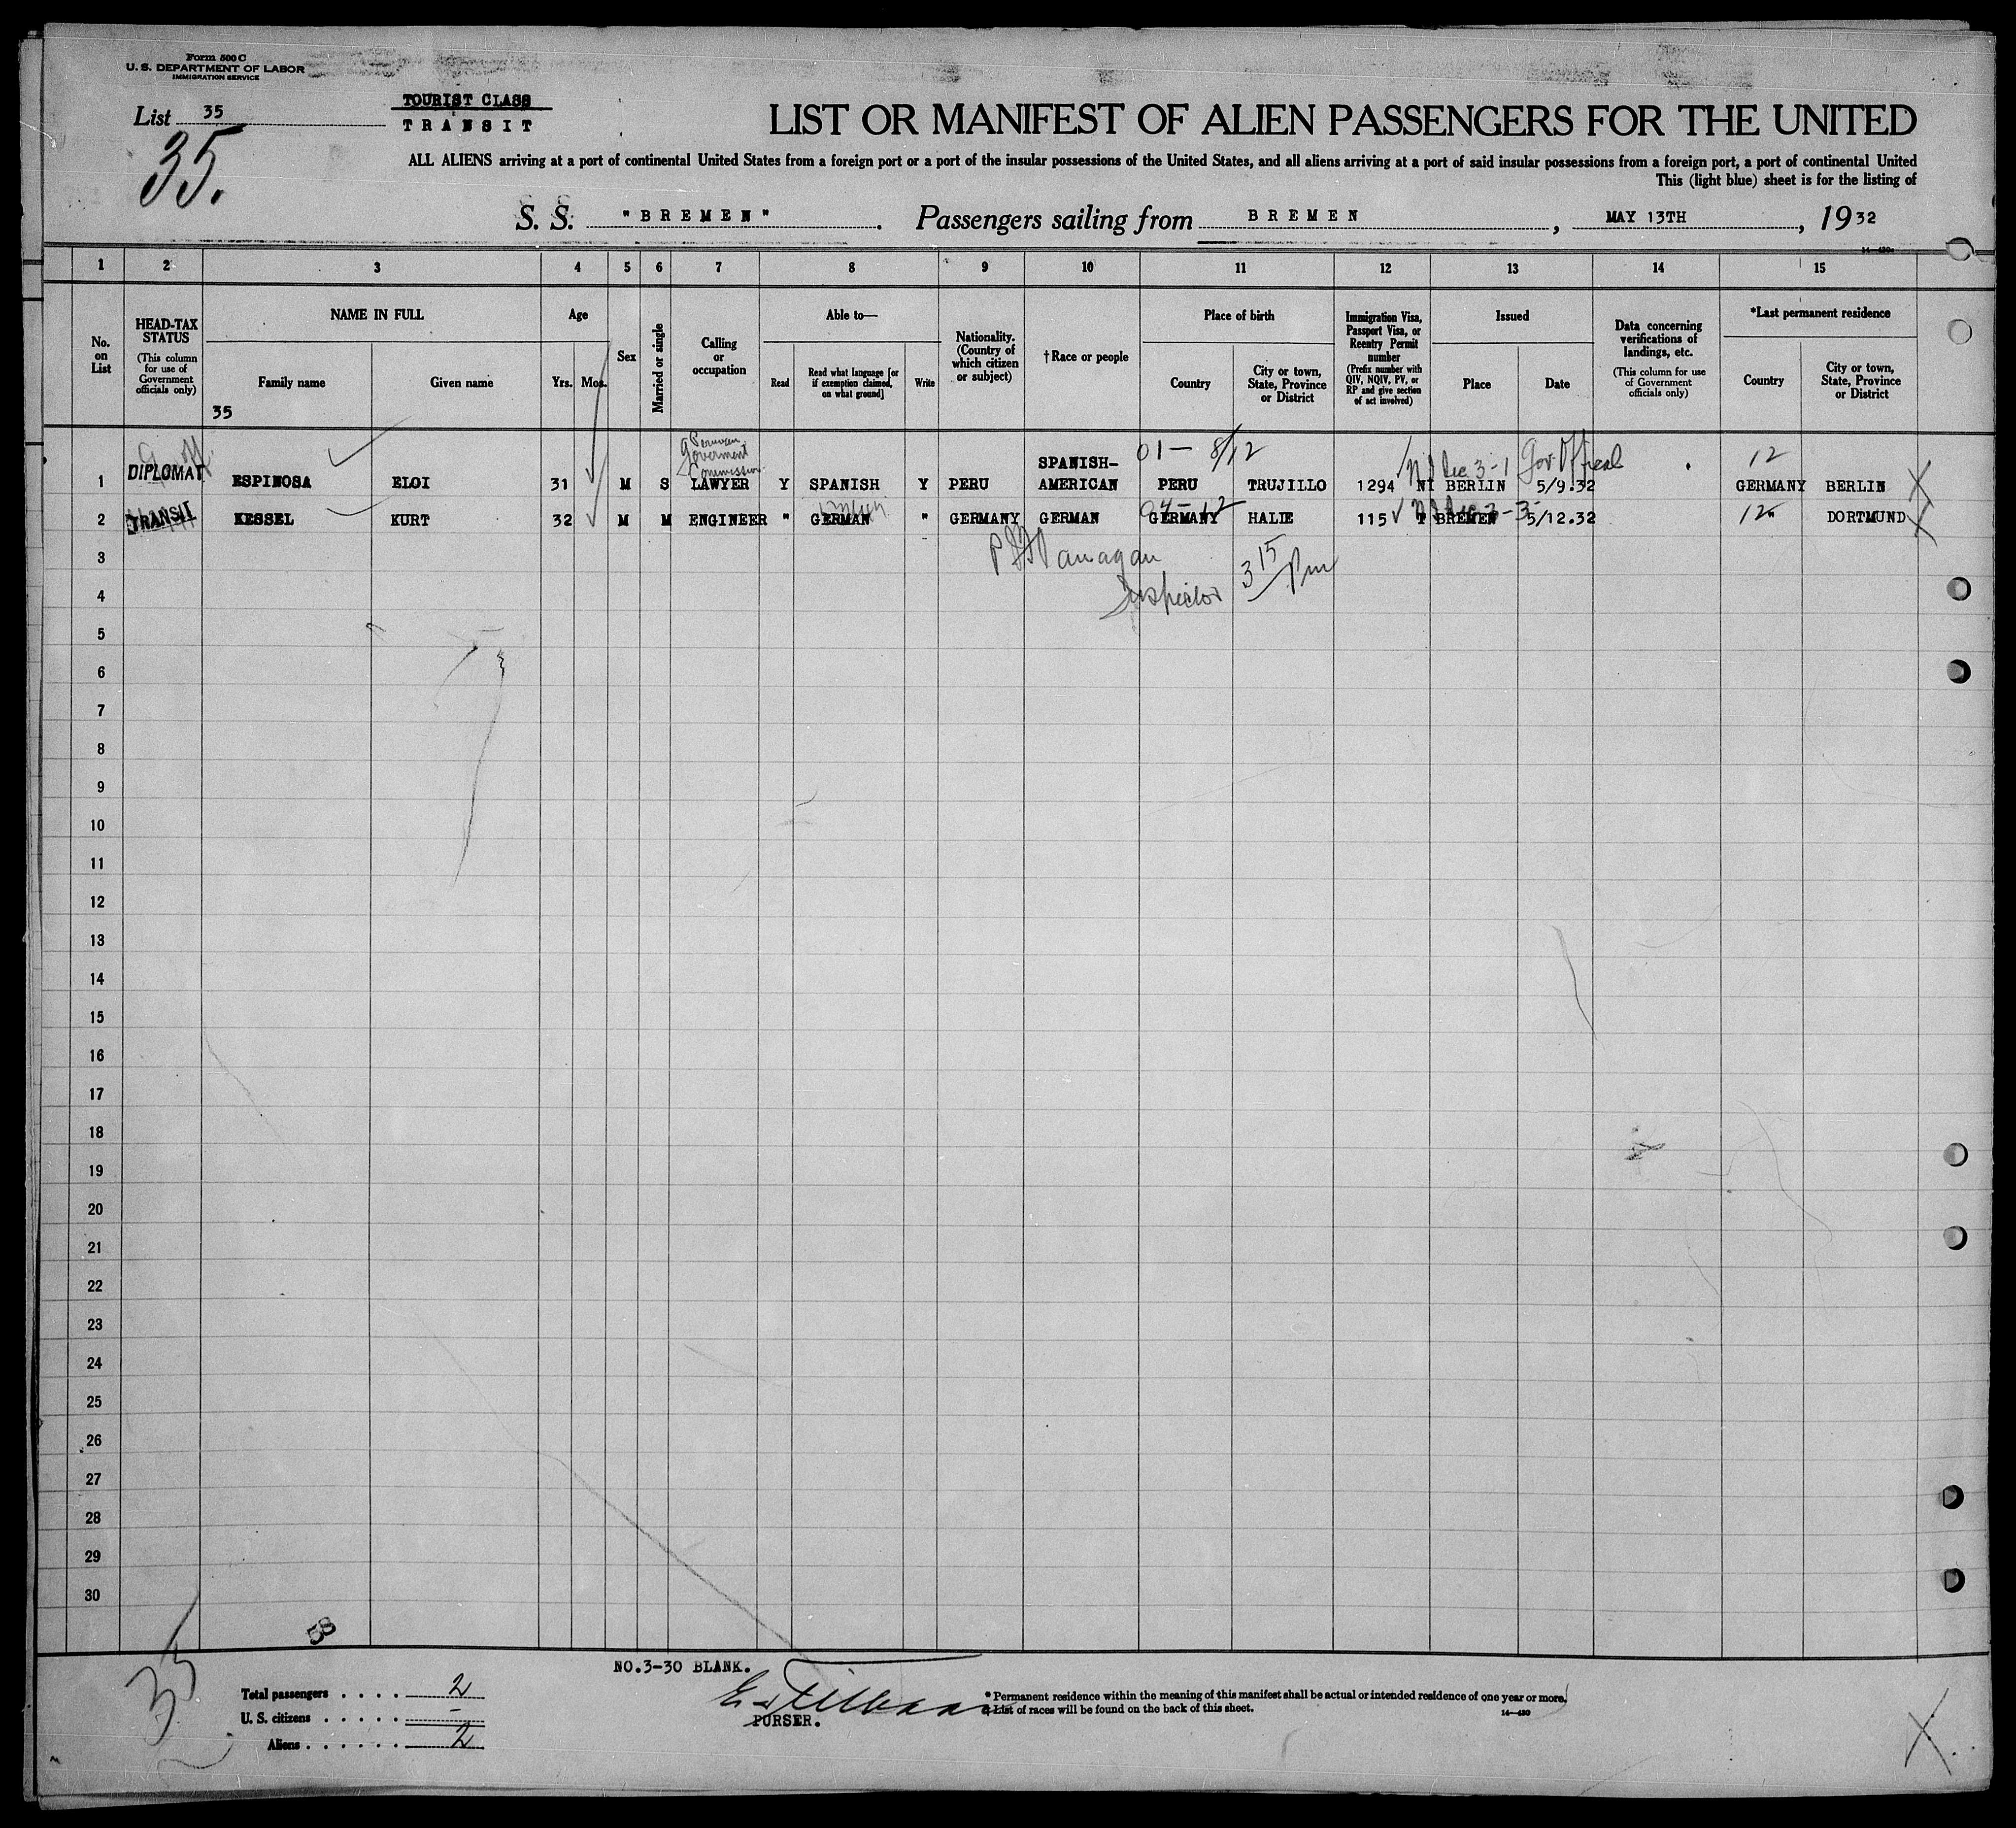 Form 500 C
U. S. DEPARTMENT OF LABOR
IMMIGRATION SERVICE
List 35
35.
TOURIST CLASS
TRANSIT
LIST OR MANIFEST OF ALIEN PASSENGERS FOR THE UNITED
ALL ALIENS arriving at a port of continental United States from a foreign port or a port of the insular possessions of the United States, and all aliens arriving at a port of said insular possessions from a foreign port, a port of continental United
This (light blue) sheet is for the listing of
S. S. "BREMEN". Passengers sailing from BREMEN, MAY 13TH, 1932
1 2 3 4 5 6 7 8 9 10 11 12 13 14 15
No. on List
HEAD-TAX STATUS (This column for use of Government officials only)
NAME IN FULL
Family name
Given name
35
Age
Yrs. Mos.
Sex
Married or single
Calling or occupation
Able to—
Read
Read what language [or if exemption claimed, on what ground]
Write
Nationality. (Country of which citizen or subject)
†Race or people
Place of birth
Country
City or town, State, Province or District
Immigration Visa, Passport Visa, or Reentry Permit number (Prefix number with QIV, NQIV, PV, or RP and give section of act involved)
Issued
Place
Date
Data concerning verifications of landings, etc. (This column for use of Government officials only)
*Last permanent residence
Country
City or town, State, Province or District
Peruvian Goverment Commission
01— 8/12
Sec 3-1 Gov Official
12
1 DIPLOMAT ESPINOSA ELOI 31 M S LAWYER Y SPANISH Y PERU SPANISH-AMERICAN PERU TRUJILLO 1294 NI BERLIN 5/9.32 GERMANY BERLIN X
2 TRANSIT KESSEL KURT 32 M M ENGINEER " GERMAN " GERMANY GERMAN GERMANY HALIE 115 T BREMEN 5/12.32 12 " DORTMUND X
3
Inspector 3 15 Pm
4
5
6
7
8
9
10
11
12
13
14
15
16
17
18
19
20
21
22
23
24
25
26
27
28
29
30
58
35
NO.3-30 BLANK.
Total passengers . . . . 2
U. S. citizens . . . . . –
Aliens . . . . . . 2
PURSER.
* Permanent residence within the meaning of this manifest shall be actual or intended residence of one year or more.
† List of races will be found on the back of this sheet.
14—430
X